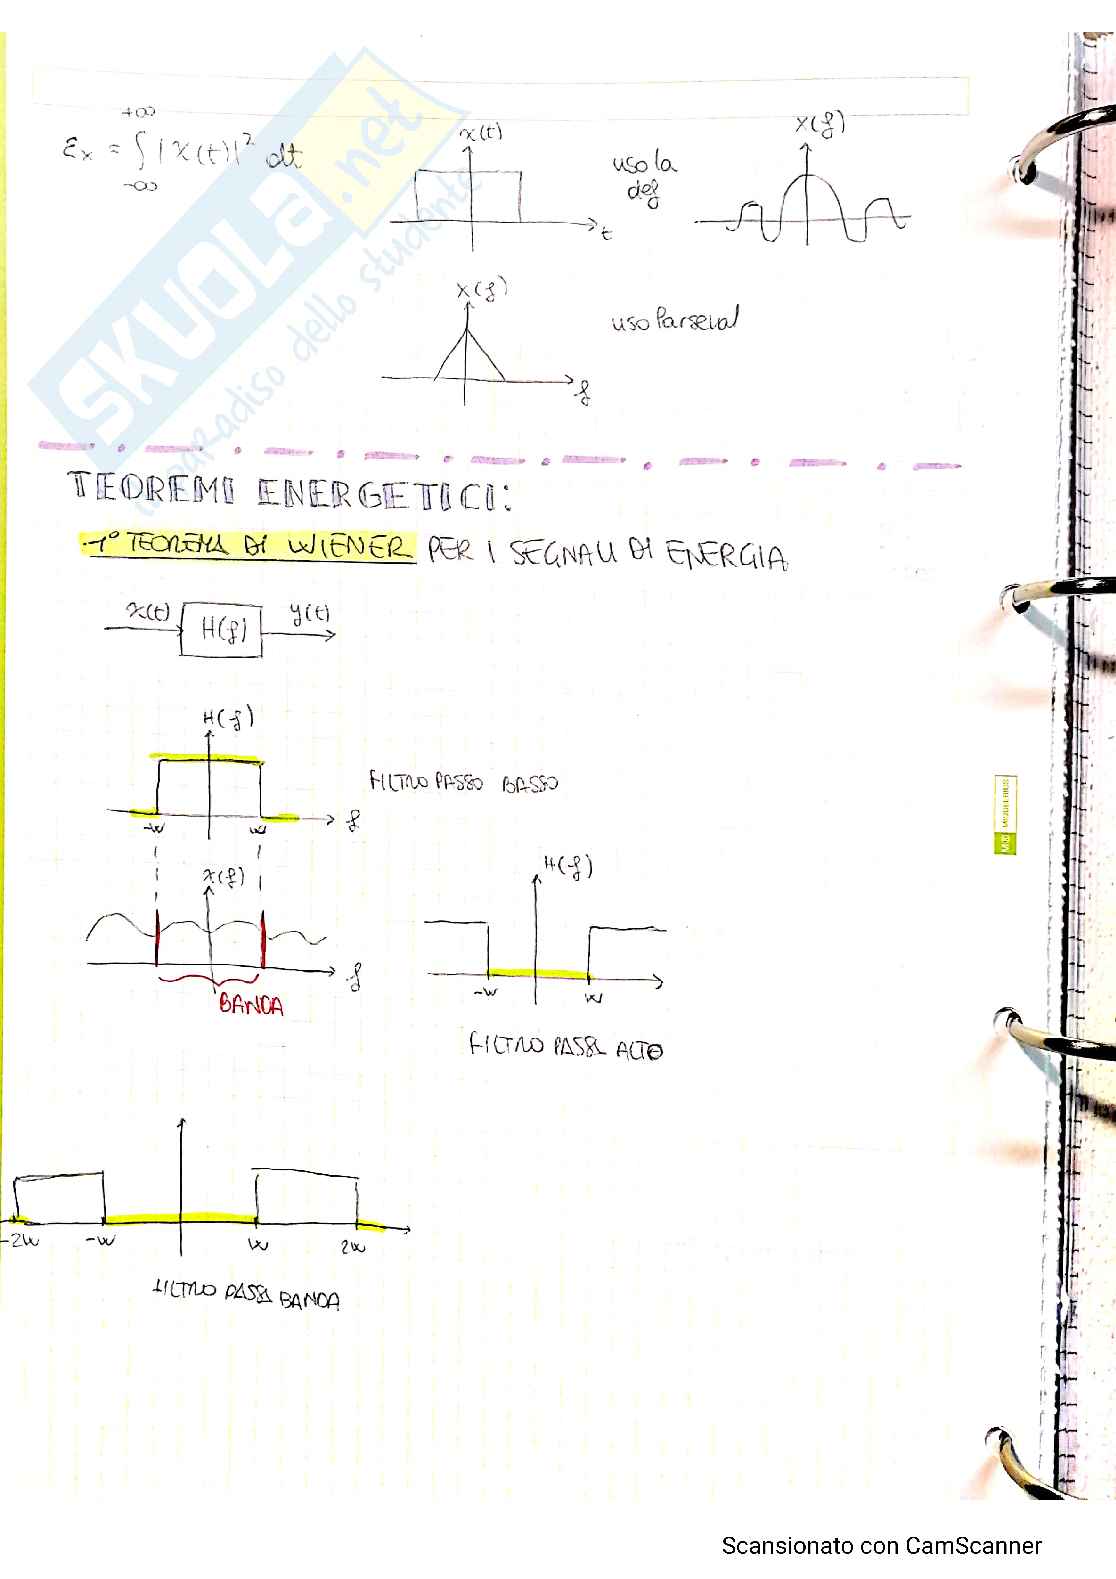 SKUOLA.net
il paradiso dello studente
+∞
Ɛx = ∫ |x(t)|² dt
-∞
x(t)
t
uso la
def
X(f)
X(f)
f
uso Parseval
TEOREMI ENERGETICI:
1° TEOREMA DI WIENER PER I SEGNALI DI ENERGIA
x(t) H(f) y(t)
H(f)
-W W f
FILTRO PASSO BASSO
X(f)
f
BANDA
H(f)
-W W
FILTRO PASSA ALTO
-2W -W W 2W
FILTRO PASSA BANDA
Scansionato con CamScanner